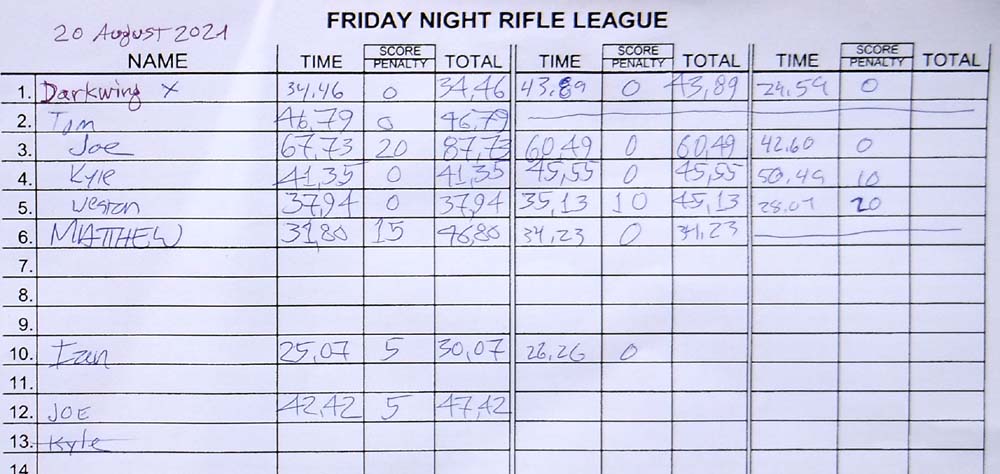 FRIDAY NIGHT RIFLE LEAGUE
20 August 2021
NAME TIME SCORE PENALTY TOTAL TIME SCORE PENALTY TOTAL TIME SCORE PENALTY TOTAL
1. Darkwing X 34.46 0 34,46 43.89 0 43,89 24.59 0
2. Tom 46,79 0 46.79
3. Joe 67,73 20 87,73 60,49 0 60,49 42.60 0
4. Kyle 41,35 0 41,35 45,55 0 45,55 50.49 10
5. Weston 37,94 0 37,94 35,13 10 45,13 28.07 20
6. MATTHEW 31,80 15 46,80 34,23 0 34,23
7.
8.
9.
10. 25,07 5 30,07 26,26 0
11.
12. JOE 42,42 5 47,42
13. Kyle
14